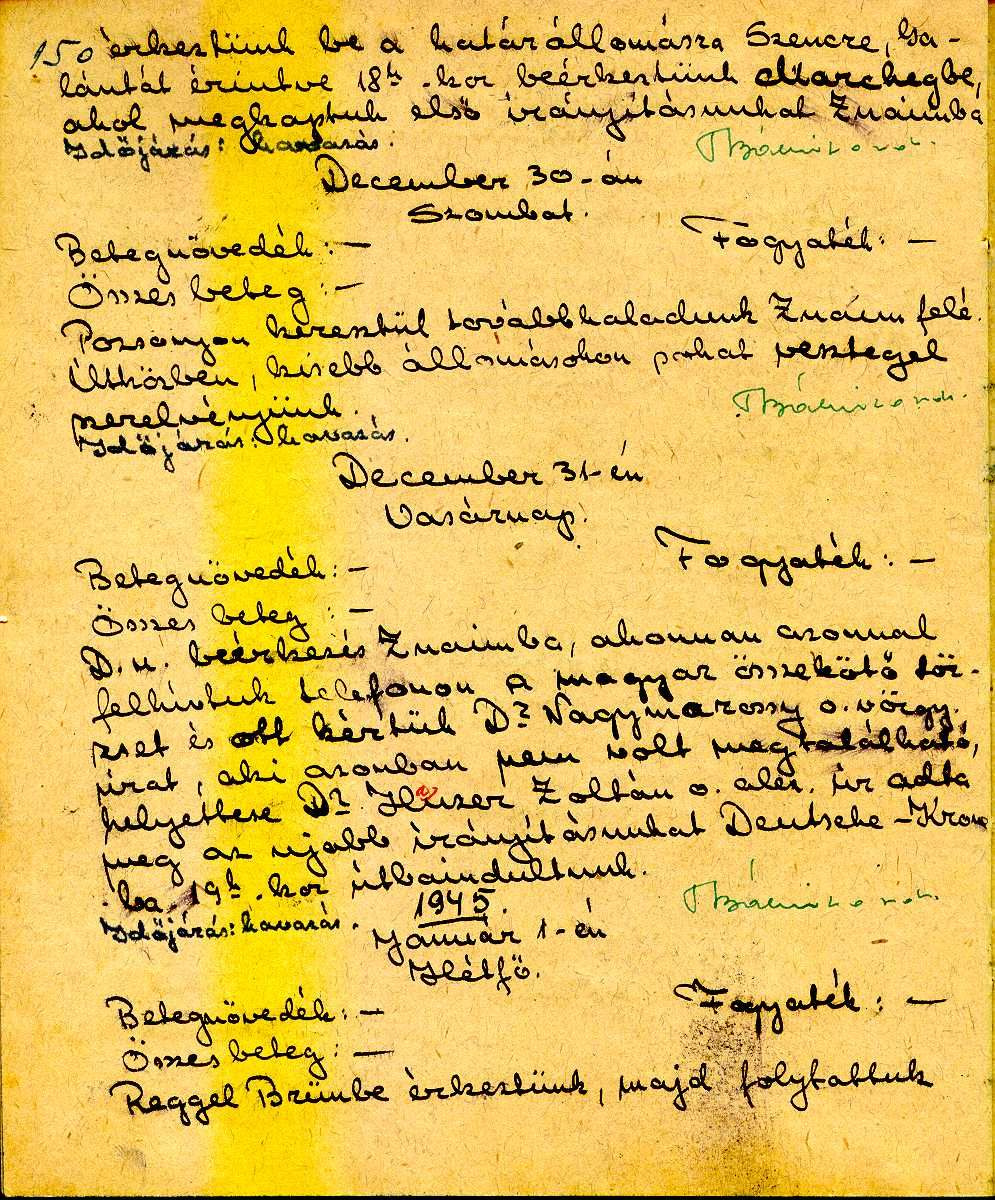 150 érkeztünk be a határállomásra Szencre, Ga-
lántát érintve 18h -kor beérkeztünk Marchegbe,
ahol megkaptuk első irányításunkat Znaimba
Időjárás: havazás.
December 30-án
Szombat.
Betegnövedék: — Fogyaték: —
Összes beteg: —
Pozsonyon keresztül továbbhaladunk Znaim felé.
Útközben, kisebb állomásokon sokat vesztegel
szerelvényünk.
Időjárás: havazás.
December 31-én
Vasárnap.
Betegnövedék: — Fogyaték: —
Összes beteg: —
D.u. beérkezés Znaimba, ahonnan azonnal
felhívtuk telefonon a magyar összekötő tör-
zset és ott kértük Dr Nagymarossy o. vörgy.
urat, aki azonban nem volt megtalálható,
helyettese Dr. Zoltán o. alez. úr adta
meg az ujabb irányításunkat Deutsche-Krone
-ba 19h -kor útbaindultunk.
Időjárás: havazás.
1945.
Január 1-én
Hétfő.
Betegnövedék: — Fogyaték: —
Összes beteg: —
Reggel Brünbe érkeztünk, majd folytattuk